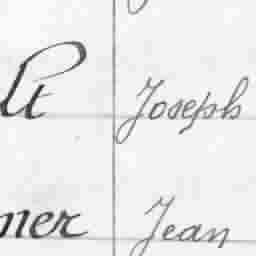 lt Joseph
ner Jean